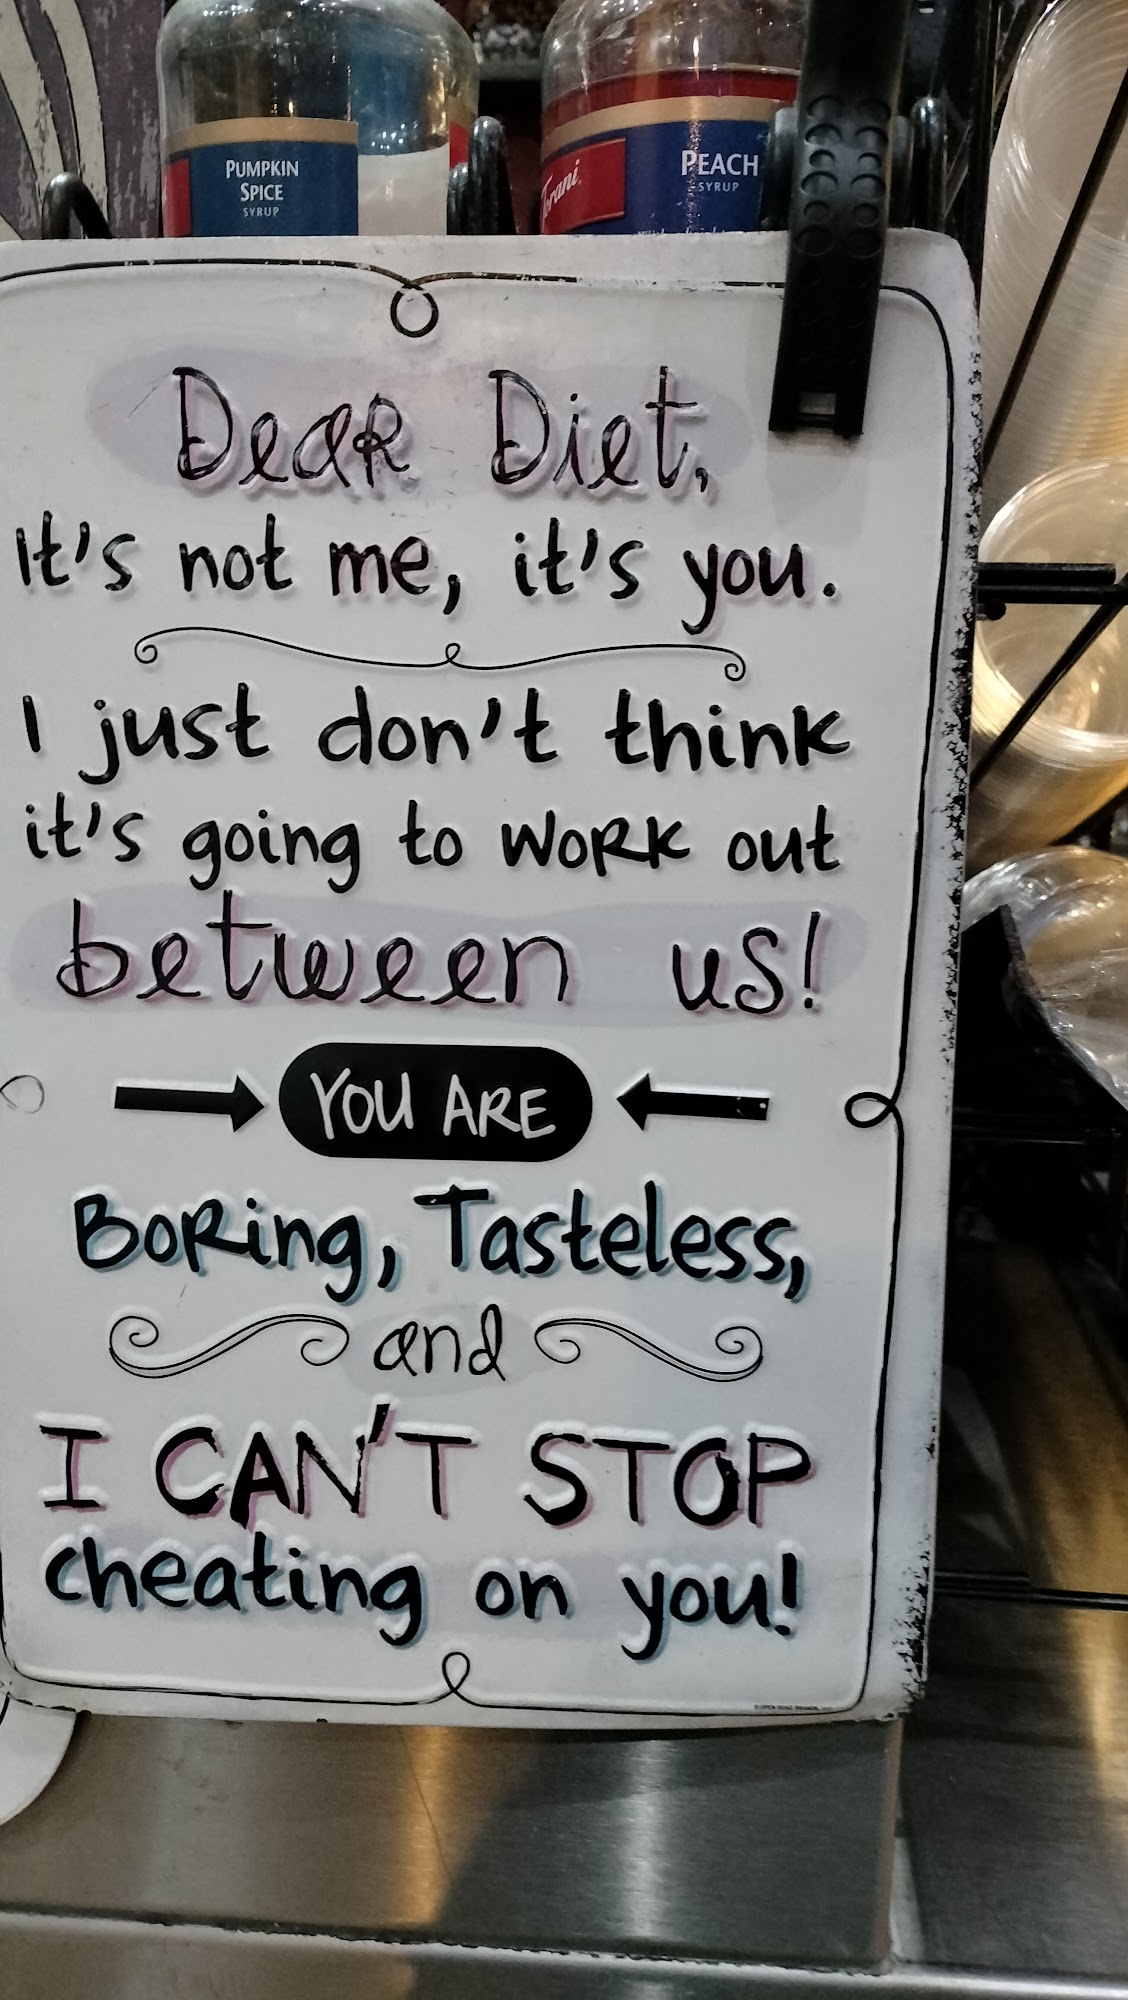 PUMPKIN
SPICE
SYRUP
Torani
PEACH
SYRUP
DeaR Diet,
It's not me, it's you.
I just don't think
it's going to WoRK out
between us!
YOU ARE
BoRing, Tasteless,
and
I CAN'T STOP
cheating on you!